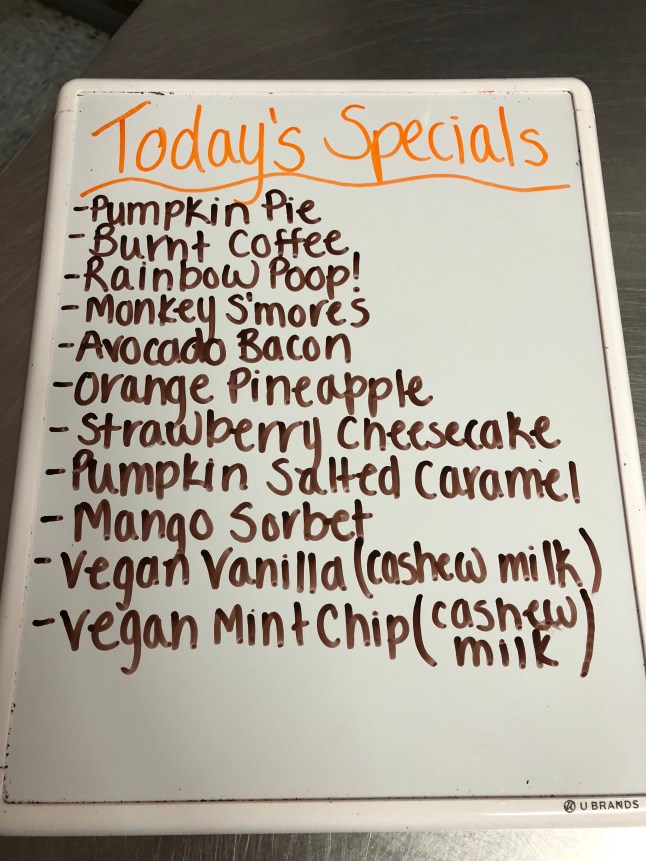 Today's Specials
-Pumpkin Pie
-Burnt Coffee
-Rainbow Poop!
-Monkey S'mores
-Avocado Bacon
-Orange Pineapple
-Strawberry Cheesecake
-Pumpkin Salted Caramel
-Mango Sorbet
-Vegan Vanilla (cashew milk)
-Vegan Mint Chip (cashew
milk)
U BRANDS